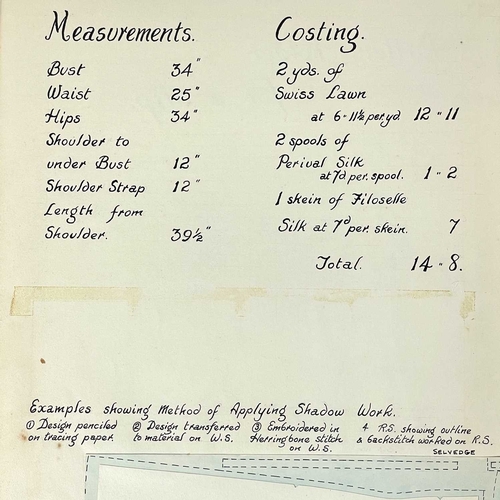 Measurements.
Bust 34"
Waist 25"
Hips 34"
Shoulder to
under Bust 12"
Shoulder Strap 12"
Length from
Shoulder. 39½"
Costing.
2 yds. of
Swiss Lawn
at 6-11½ per yd. 12 " 11
2 spools of
Perival Silk
at 7d per. spool. 1 - 2
1 skein of Filoselle
Silk at 7d per. skein. 7
Total. 14 " 8.
Examples showing Method of Applying Shadow Work.
① Design penciled
on tracing paper.
② Design transferred
to material on W.S.
③ Embroidered in
Herringbone stitch
on W.S.
4 R.S. showing outline
& backstitch worked on R.S.
SELVEDGE